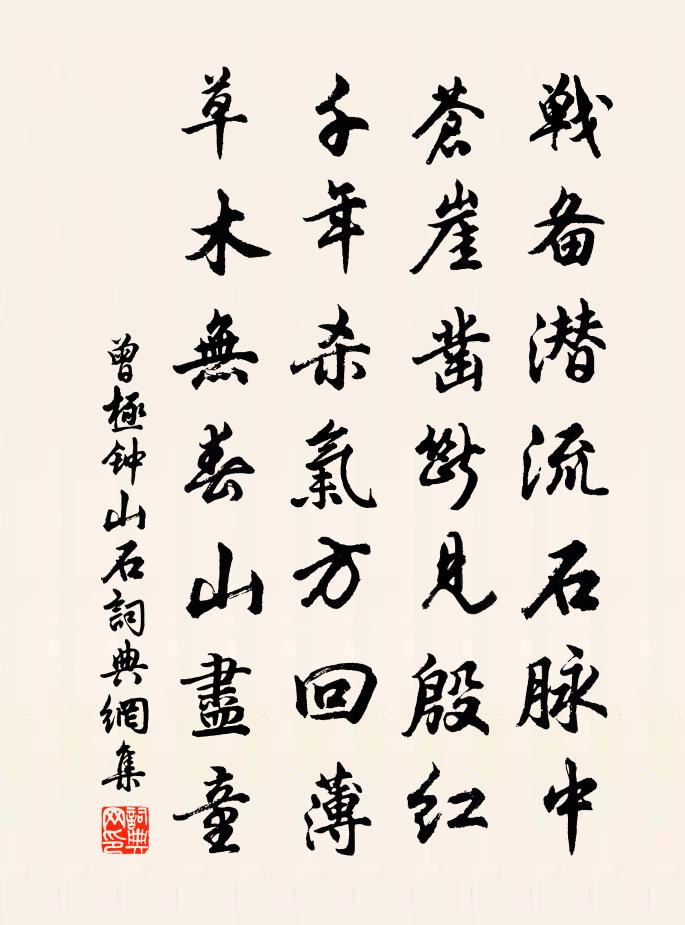 戦备潜流石脉中
蒼崖凿斷見殷红
千年杀氣方回薄
草木無春山盡童
曾極钟山石詞典網集
詞典网印